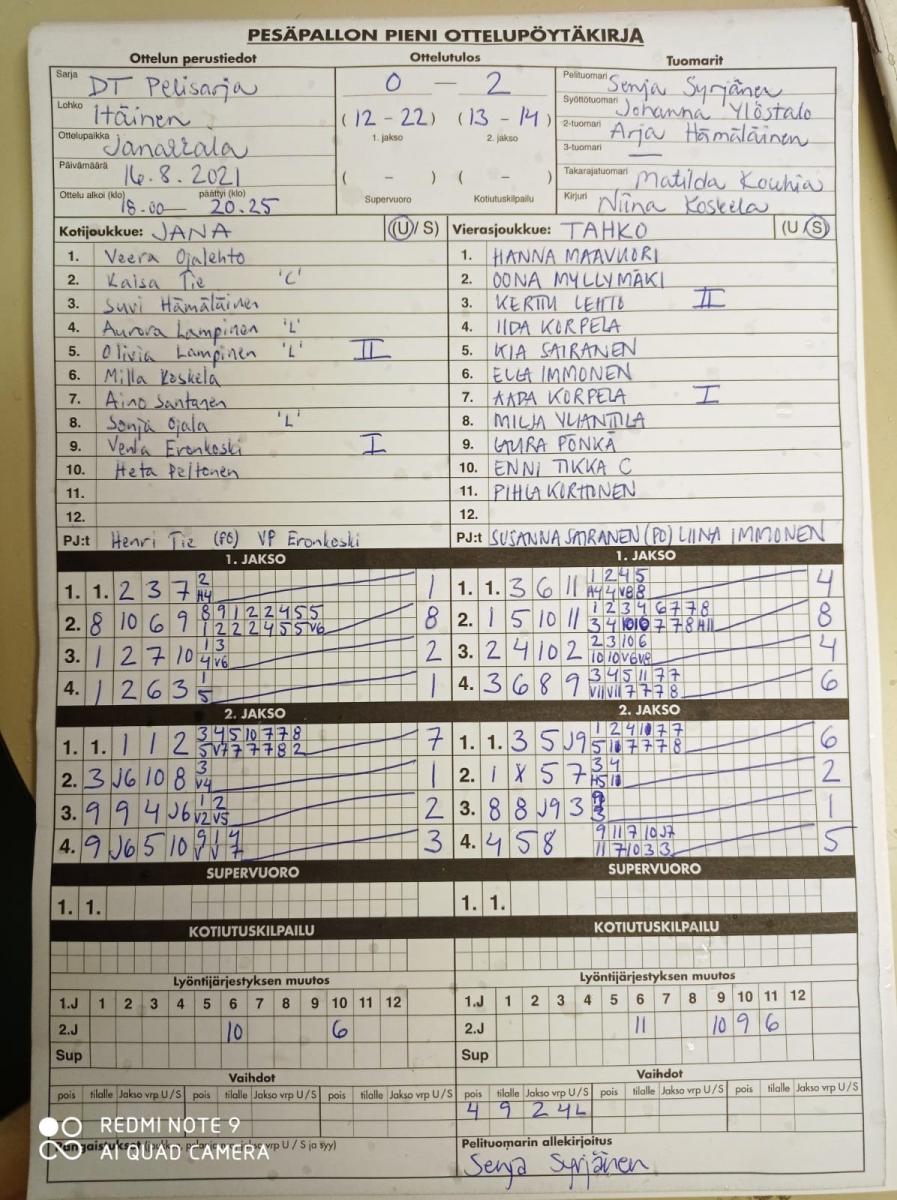 PESÄPALLON PIENI OTTELUPÖYTÄKIRJA
Ottelun perustiedot
Sarja DT Pelisarja
Lohko Itäinen
Ottelupaikka Janakkala
Päivämäärä 16.8.2021
Ottelu alkoi (klo) 18.00 päättyi (klo) 20.25
Ottelutulos
0 – 2
(12 - 22) (13 - 14)
1. jakso 2. jakso
( – ) ( – )
Supervuoro Kotiutuskilpailu
Tuomarit
Pelituomari Senja Syrjänen
Syöttötuomari Johanna Ylöstalo
2-tuomari Arja Hämäläinen
3-tuomari —
Takarajatuomari Matilda Kouhia
Kirjuri Niina Koskela
Kotijoukkue: JANA (U/S)
1. Veera Ojalehto
2. Kaisa Tie 'C'
3. Suvi Hämäläinen
4. Aurora Lampinen 'L'
5. Olivia Lampinen 'L' II
6. Milla Koskela
7. Aino Santanen
8. Sonja Ojala 'L'
9. Venla Eronkoski I
10. Heta Peltonen
11.
12.
PJ:t Henri Tie (PÖ) VP Eronkoski
Vierasjoukkue: TAHKO (U/S)
1. HANNA MAAVUORI
2. OONA MYLLYMÄKI
3. KERTTU LEHTO II
4. IIDA KORPELA
5. KIA SAIRANEN
6. ELLA IMMONEN
7. AADA KORPELA I
8. MILJA YLIANTTILA
9. LAURA PÖNKÄ
10. ENNI TIKKA C
11. PIHLA KORTONEN
12.
PJ:t SUSANNA SAIRANEN (PÖ) LIINA IMMONEN
1. JAKSO
1. 1. 2 3 7 2 1
H4
2. 8 10 6 9 8 9 1 2 2 4 5 5 8
1 2 2 2 4 5 5 V6
3. 1 2 7 10 1 3 2
4 V6
4. 1 2 6 3 1 1
5
1. JAKSO
1. 1. 3 6 11 1 2 4 5 4
H4 4 V8 8
2. 1 5 10 11 1 2 3 4 6 7 7 8 8
3 4 10 10 7 7 8 H11
3. 2 4 10 2 2 3 10 6 4
10 10 V6 V8
4. 3 6 8 9 3 4 5 11 7 7 6
V11 V11 7 7 7 8
2. JAKSO
1. 1. 1 1 2 3 4 5 10 7 7 8 7
5 V7 7 7 7 8 2
2. 3 J6 10 8 3 1
V4
3. 9 9 4 J6 1 2 2
V2 V5
4. 9 J6 5 10 9 1 4 3
2. JAKSO
1. 1. 3 5 J9 6
2. 1 8 5 7 3 4 2
3. 8 8 J9 3 1
4. 4 5 8 9 11 7 10 J7 5
11 7 10 3 3
SUPERVUORO
1. 1.
SUPERVUORO
1. 1.
KOTIUTUSKILPAILU
KOTIUTUSKILPAILU
Lyöntijärjestyksen muutos
1.J 1 2 3 4 5 6 7 8 9 10 11 12
2.J 10 6
Sup
Lyöntijärjestyksen muutos
1.J 1 2 3 4 5 6 7 8 9 10 11 12
2.J 11 10 9 6
Sup
Vaihdot
pois tilalle Jakso vrp U / S pois tilalle Jakso vrp U / S pois tilalle Jakso vrp U / S
Vaihdot
pois tilalle Jakso vrp U / S pois tilalle Jakso vrp U / S pois tilalle Jakso vrp U / S
4 9 2 4L
Pelituomarin allekirjoitus
Senja Syrjänen
REDMI NOTE 9
AI QUAD CAMERA